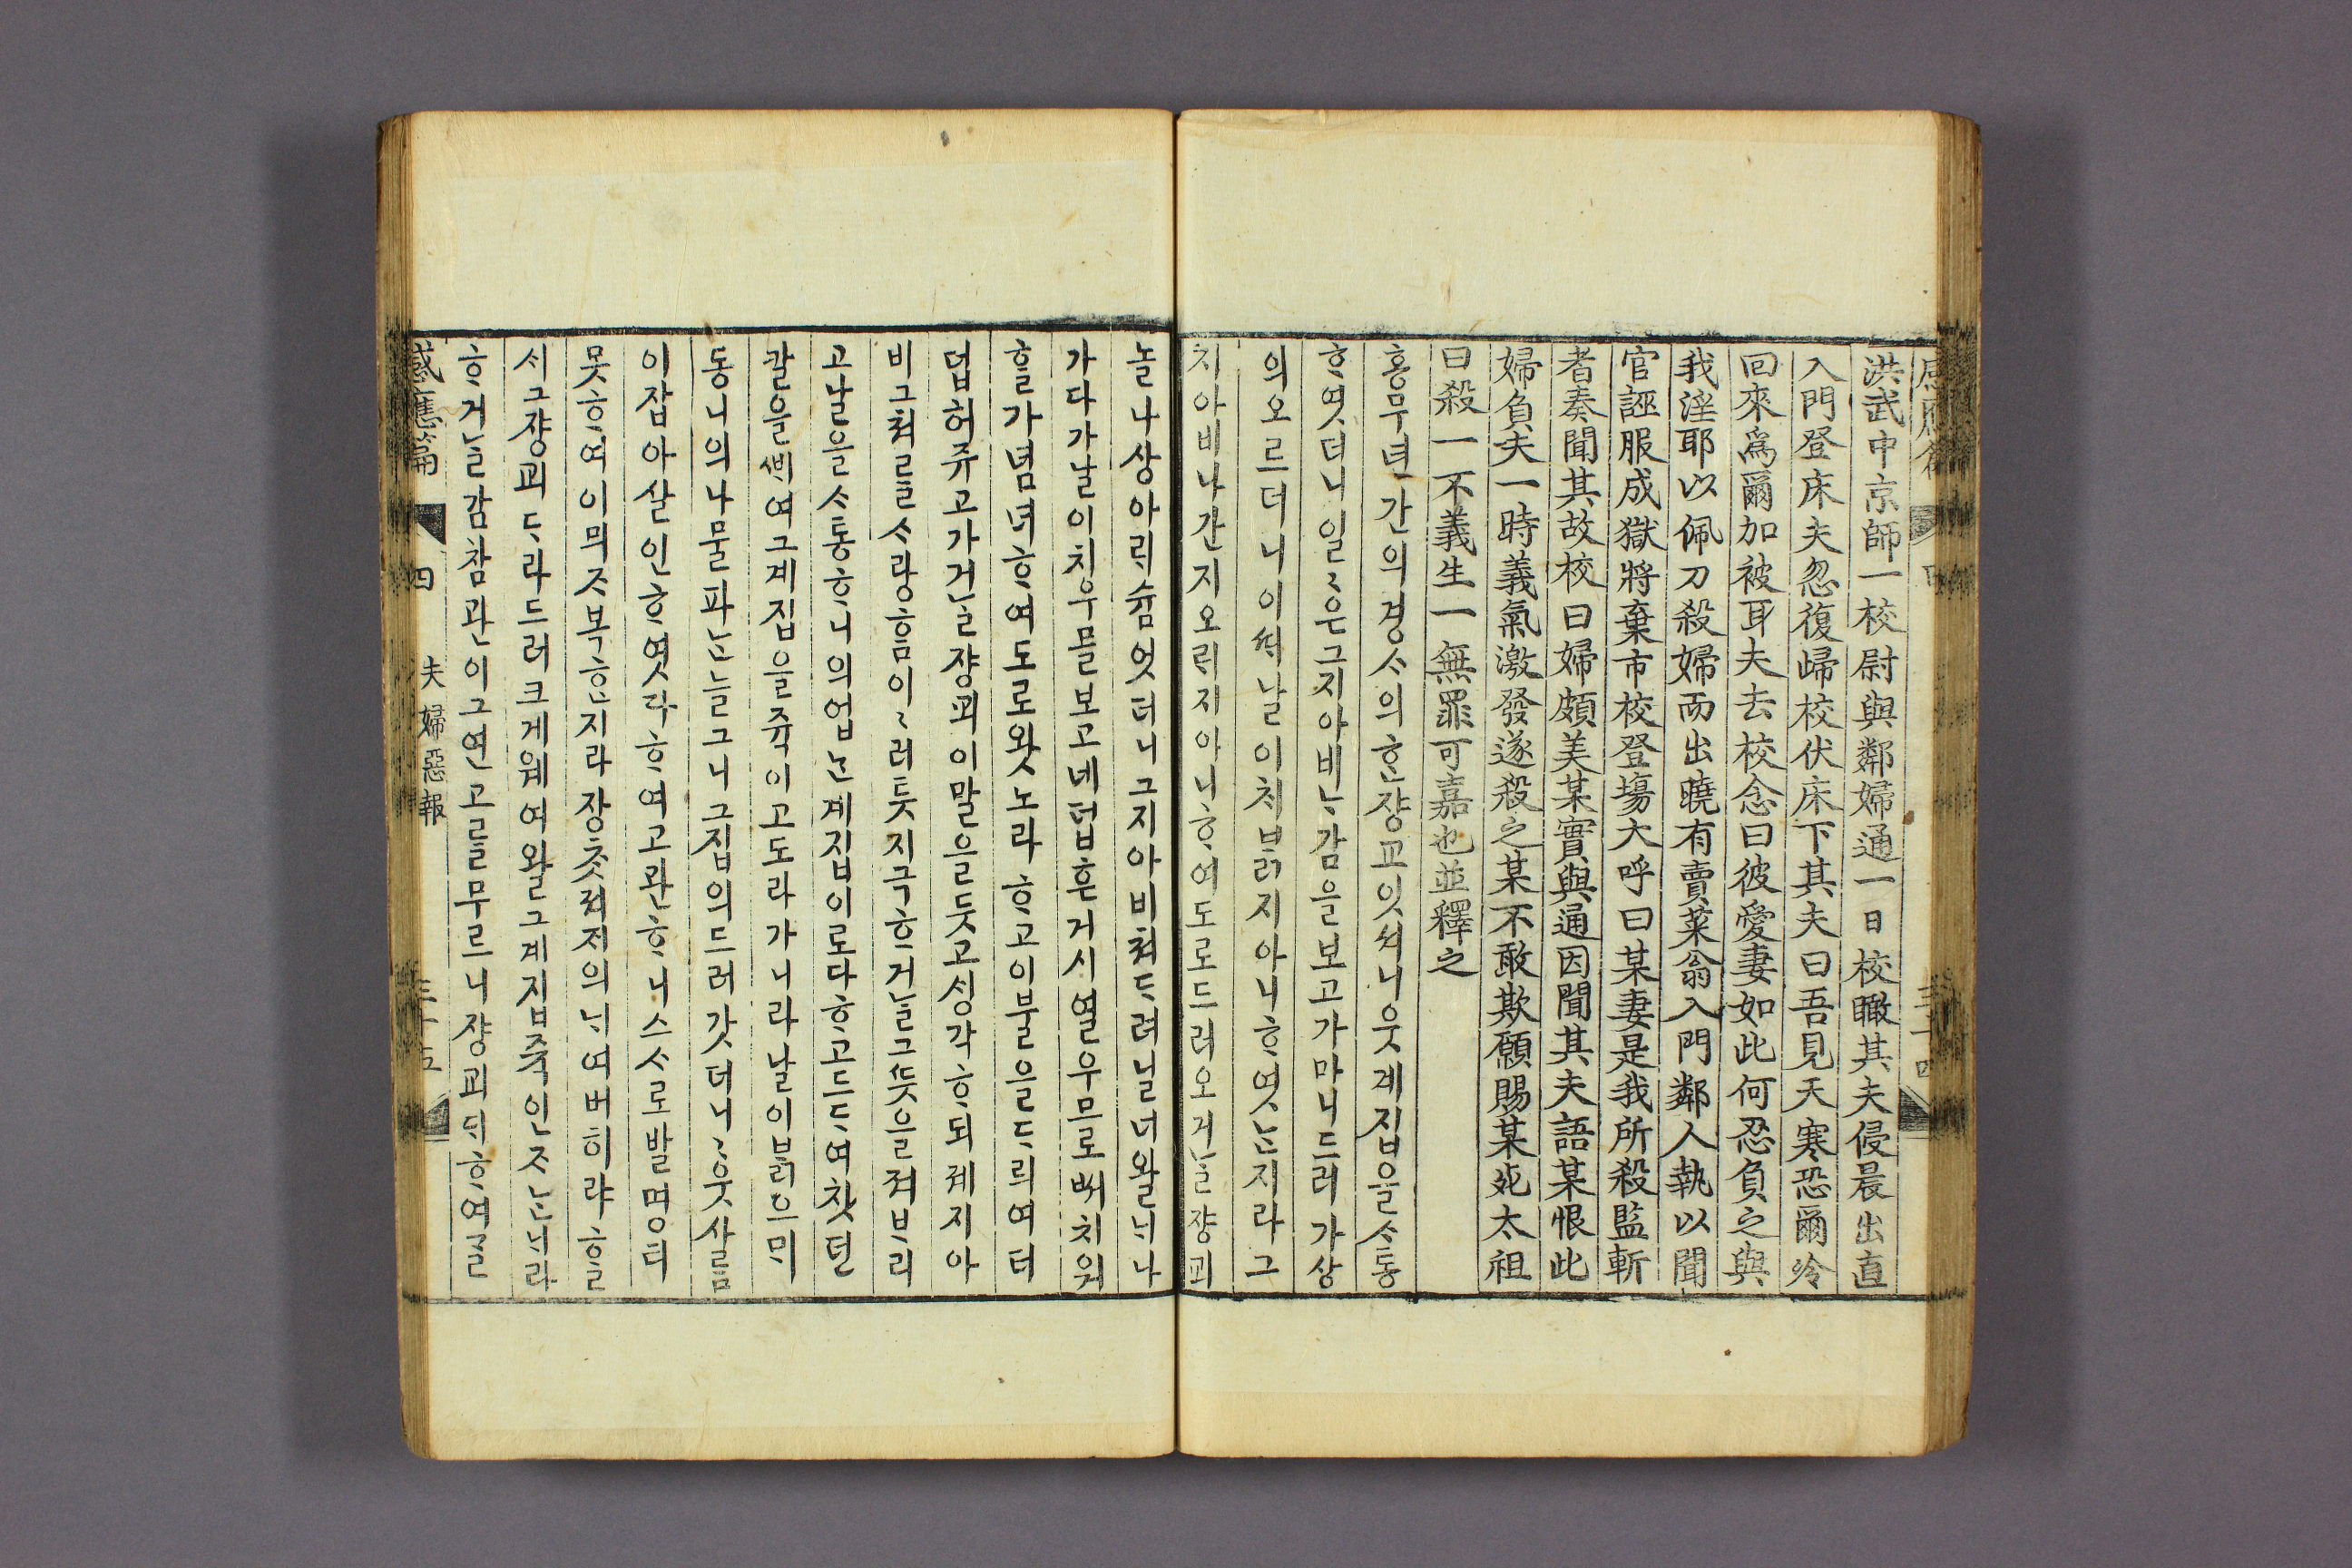 洪武中京師一校尉與鄰婦通一日校瞰其夫侵晨出直
入門登床夫忽復歸校伏床下其夫曰吾見天寒恐爾冷
回來爲爾加被耳夫去校念曰彼愛妻如此何忍負之與
我淫耶以佩刀殺婦而出曉有賣菜翁入門鄰人執以聞
官誣服成獄將棄市校登塲大呼曰某妻是我所殺監斬
者奏聞其故校曰婦頗美某實與通因聞其夫語某恨此
婦負夫一時義氣激發遂殺之某不敢欺願賜某死太祖
曰殺一不義生一無罪可嘉也並釋之
홍무년간의경ᄉᆞ의ᄒᆞᆫ쟝교잇셔니웃계집을ᄉᆞ통
ᄒᆞ엿더니일〻은그지아비ᄂᆞ감을보고가마니드러가상
의오르더니이ᄯᅢ날이ᄎᆡ붉지아니ᄒᆞ엿ᄂᆞᆫ지라그
지아비나간지오ᄅᆡ지아니ᄒᆞ여도로드러오거ᄂᆞᆯ쟝괴
놀나상아ᄅᆡ숨엇더니그지아비쳐ᄃᆞ려닐너왈ᄂᆡ나
가다가날이치우믈보고네덥흔거시열우므로ᄲᅢ치워
ᄒᆞᆯ가념녀ᄒᆞ여도로왓노라ᄒᆞ고이불을ᄃᆞ릐여더
덥허쥬고가거ᄂᆞᆯ쟝괴이말을듯고ᄉᆡᆼ각ᄒᆞ되졔지아
비그쳐ᄅᆞᆯᄉᆞ랑ᄒᆞᆷ이〻러듯지극ᄒᆞ거ᄂᆞᆯ그ᄯᅳᆺ을져ᄇᆞ리
고날을ᄉᆞ통ᄒᆞ니의업ᄂᆞᆫ계집이로다ᄒᆞ고드ᄃᆞ여찻던
칼을ᄲᅢ여그계집을쥭이고도라가니라날이붉으ᄆᆡ
동ᄂᆡ의나물파ᄂᆞᆫ늘그니그집의드러갓더니〻웃사ᄅᆞᆷ
이잡아살인ᄒᆞ엿다ᄒᆞ여고관ᄒᆞ니스ᄉᆞ로발명티
못ᄒᆞ여이믜ᄌᆞ복ᄒᆞᆫ지라쟝ᄎᆞᆺ져ᄌᆡ의ᄂᆡ여버히랴ᄒᆞᆯ
ᄉᆡ그쟝괴ᄃᆞ라드러크게웨여왈그계집쥭인ᄌᆞᄂᆞᆫᄂᆡ라
ᄒᆞ거ᄂᆞᆯ감참관이그연고ᄅᆞᆯ무르니쟝괴ᄃᆡᄒᆞ여ᄀᆞᆯ
感應篇 四 夫婦惡報 三十五